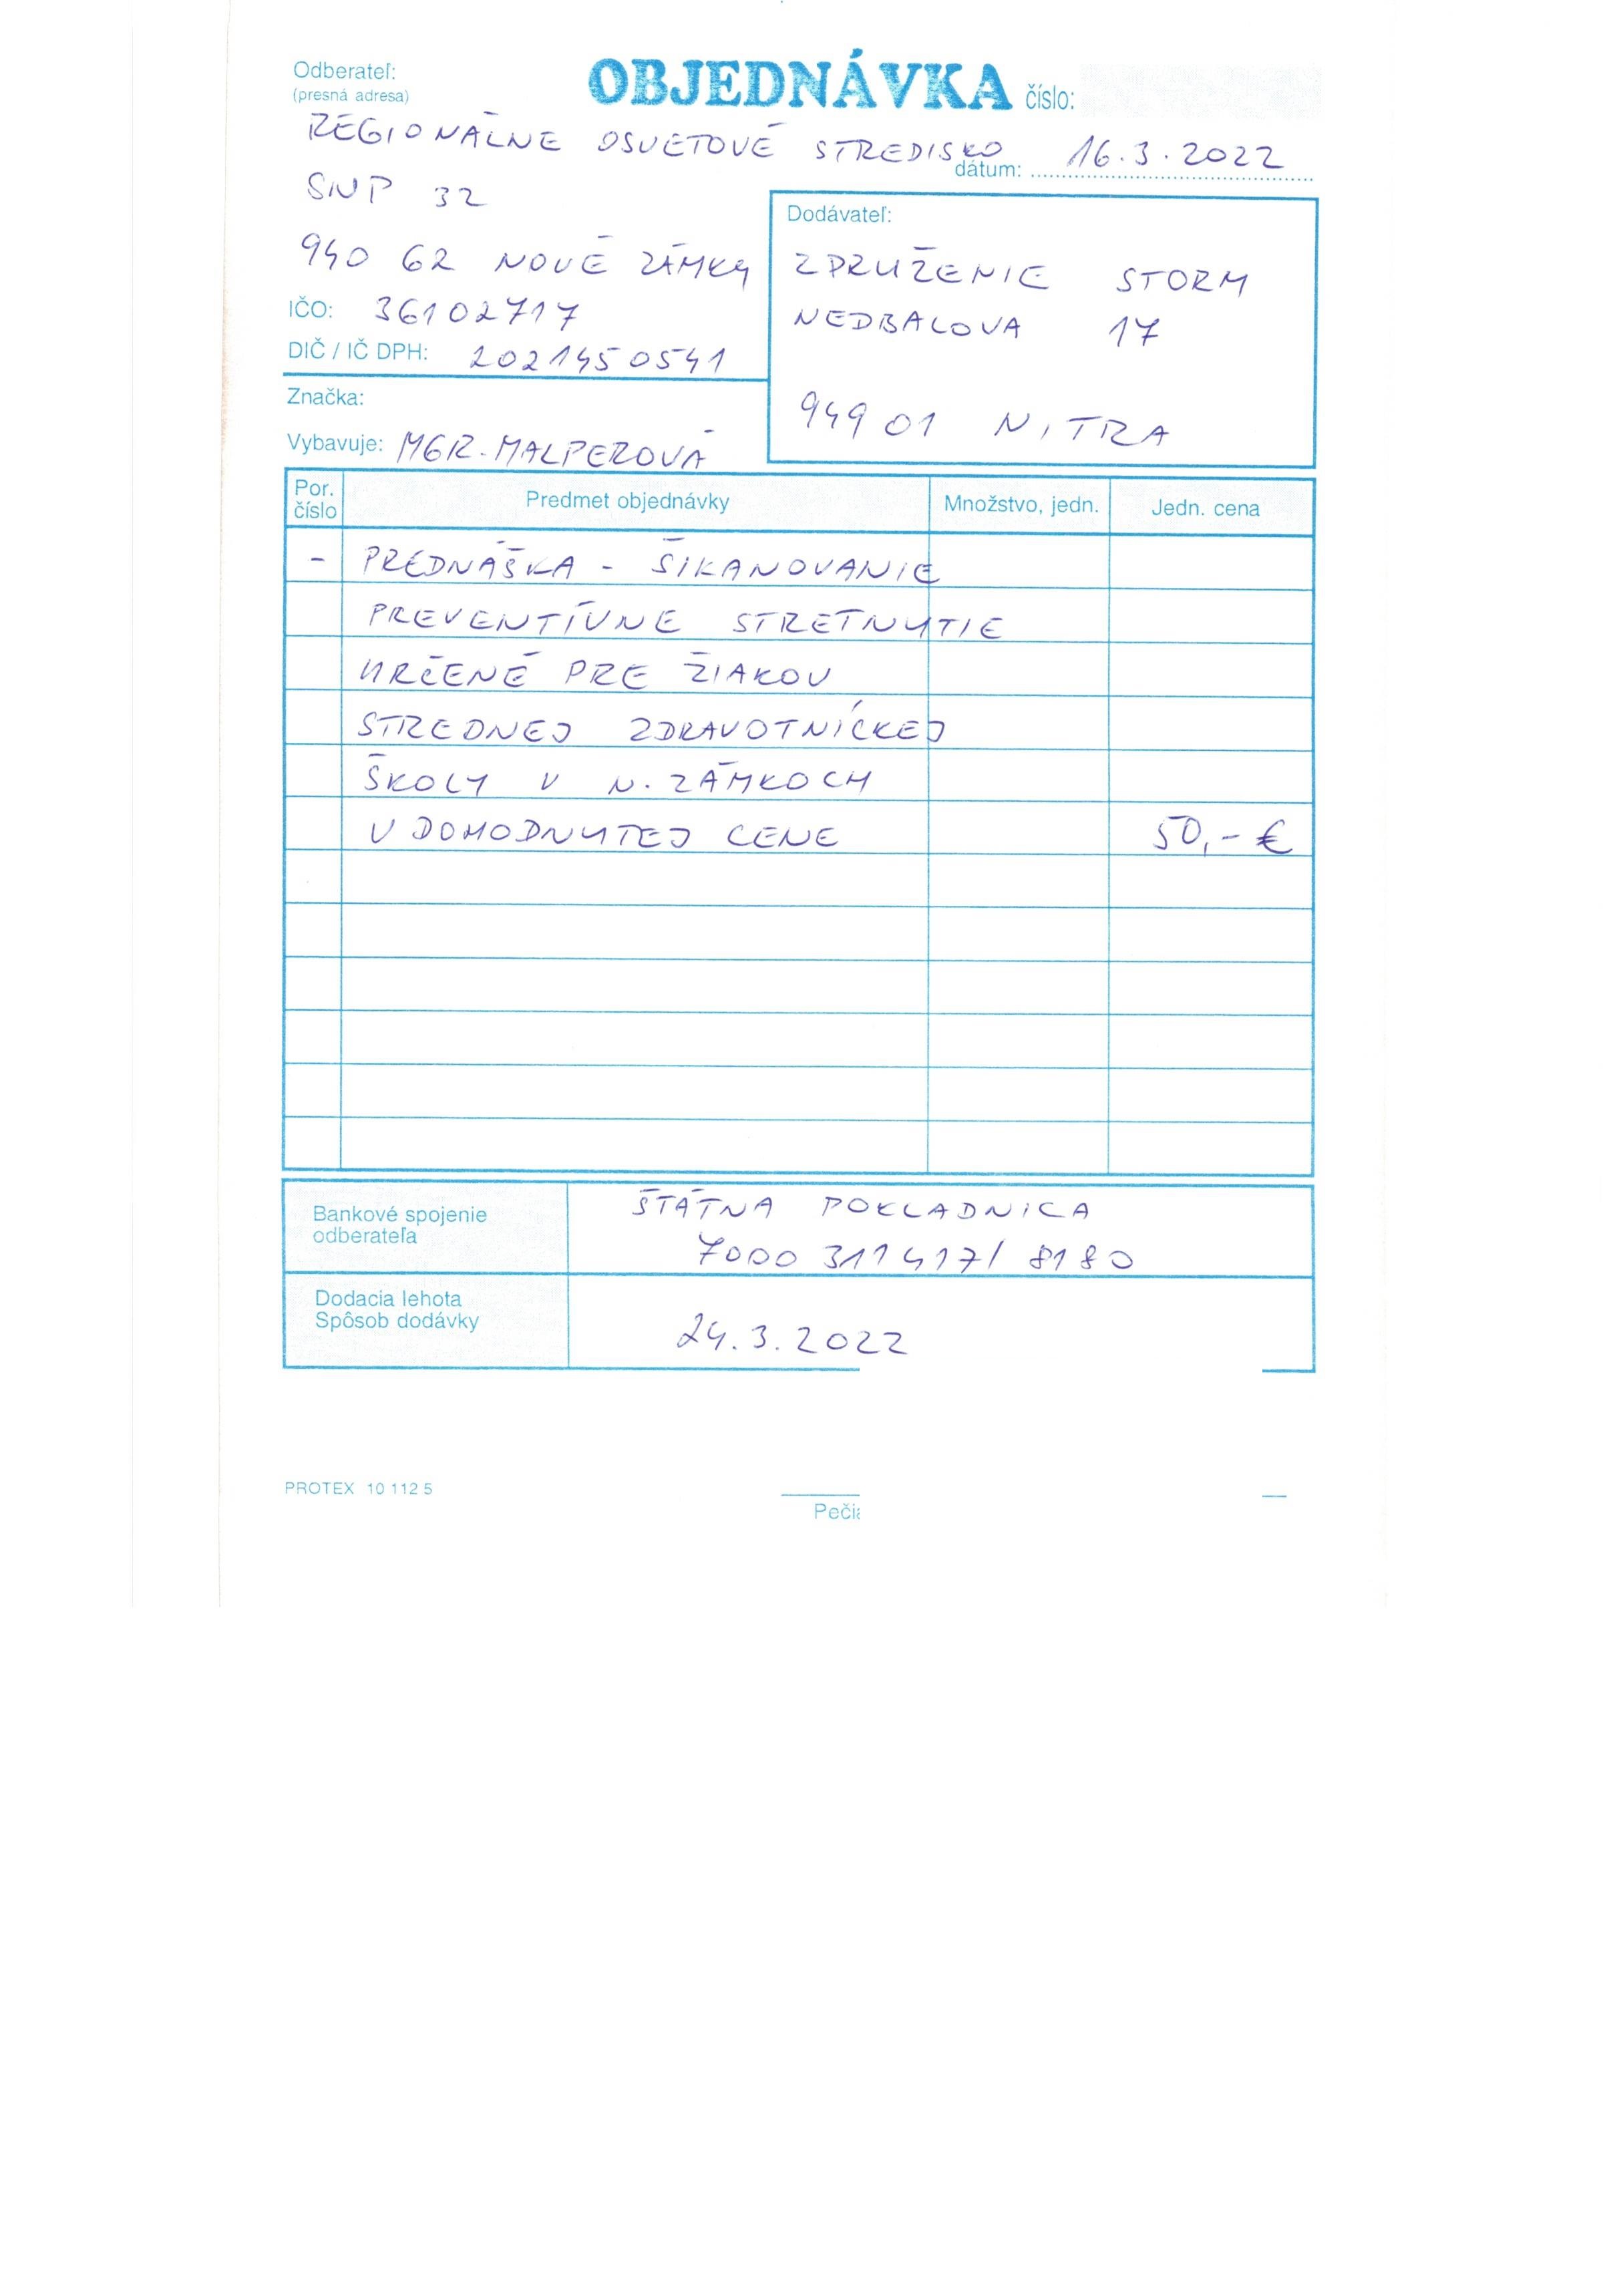 Odberateľ:
(presná adresa)
OBJEDNÁVKA číslo:
REGIONÁLNE OSVETOVÉ STREDISKO
dátum: 16.3.2022
SNP 32
940 62 NOVÉ ZÁMKY
IČO: 36102717
DIČ / IČ DPH: 2021450541
Značka:
Vybavuje: MGR. MALPEROVÁ
Dodávateľ:
ZDRUŽENIE STORM
NEDBALOVA 17
949 01 NITRA
Por. číslo Predmet objednávky Množstvo, jedn. Jedn. cena
- PREDNÁŠKA - ŠIKANOVANIE
PREVENTÍVNE STRETNUTIE
URČENÉ PRE ŽIAKOV
STREDNEJ ZDRAVOTNÍCKEJ
ŠKOLY V N. ZÁMKOCH
V DOHODNUTEJ CENE 50,- €
Bankové spojenie
odberateľa
ŠTÁTNA POKLADNICA
7000 311417/8180
Dodacia lehota
Spôsob dodávky
24.3.2022
PROTEX 10 112 5